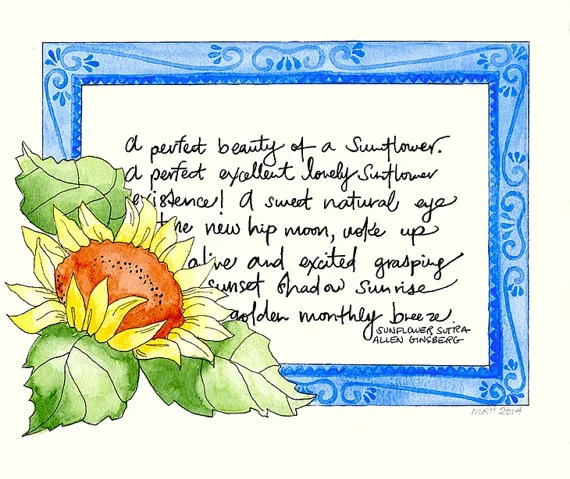 A perfect beauty of a Sunflower.
A perfect excellent lovely Sunflower
existence! A sweet natural eye
the new hip moon, woke up
alive and excited grasping
sunset shadow sunrise
golden monthly breeze.
SUNFLOWER SUTRA
ALLEN GINSBERG
MRH 2014